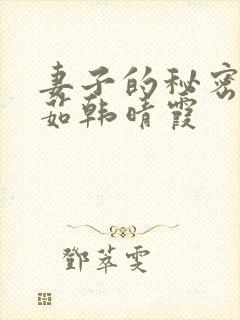 妻子的秘密
茹韩晴霞
鄧萃雯